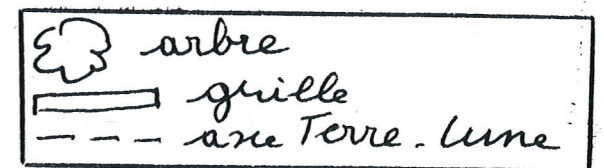 arbre
grille
axe Terre-Lune